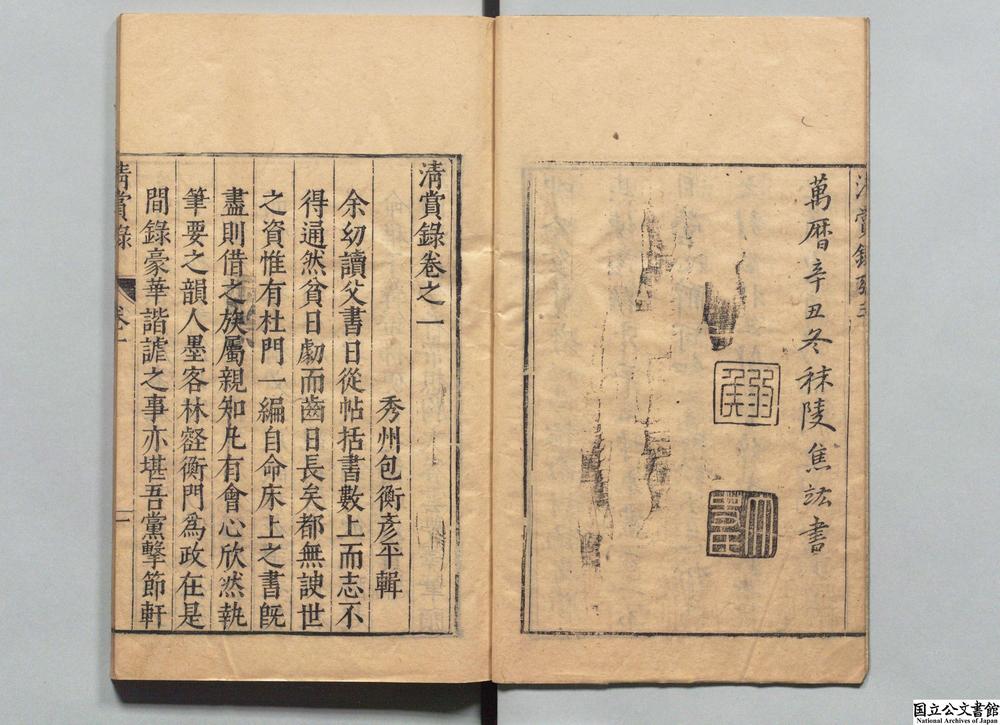 萬曆辛丑冬秣陵焦竑書
清賞錄卷之一
秀州包衡彥平輯
余幼讀父書日從帖括書數上而志不
得通然貧日劇而齒日長矣都無諛世
之資惟有杜門一編自命床上之書旣
盡則借之族屬親知凡有會心欣然執
筆要之韻人墨客林壑衡門為政在是
間錄豪華諧謔之事亦堪吾黨擊節軒
清賞錄
卷一
一
国立公文書館
National Archives of Japan